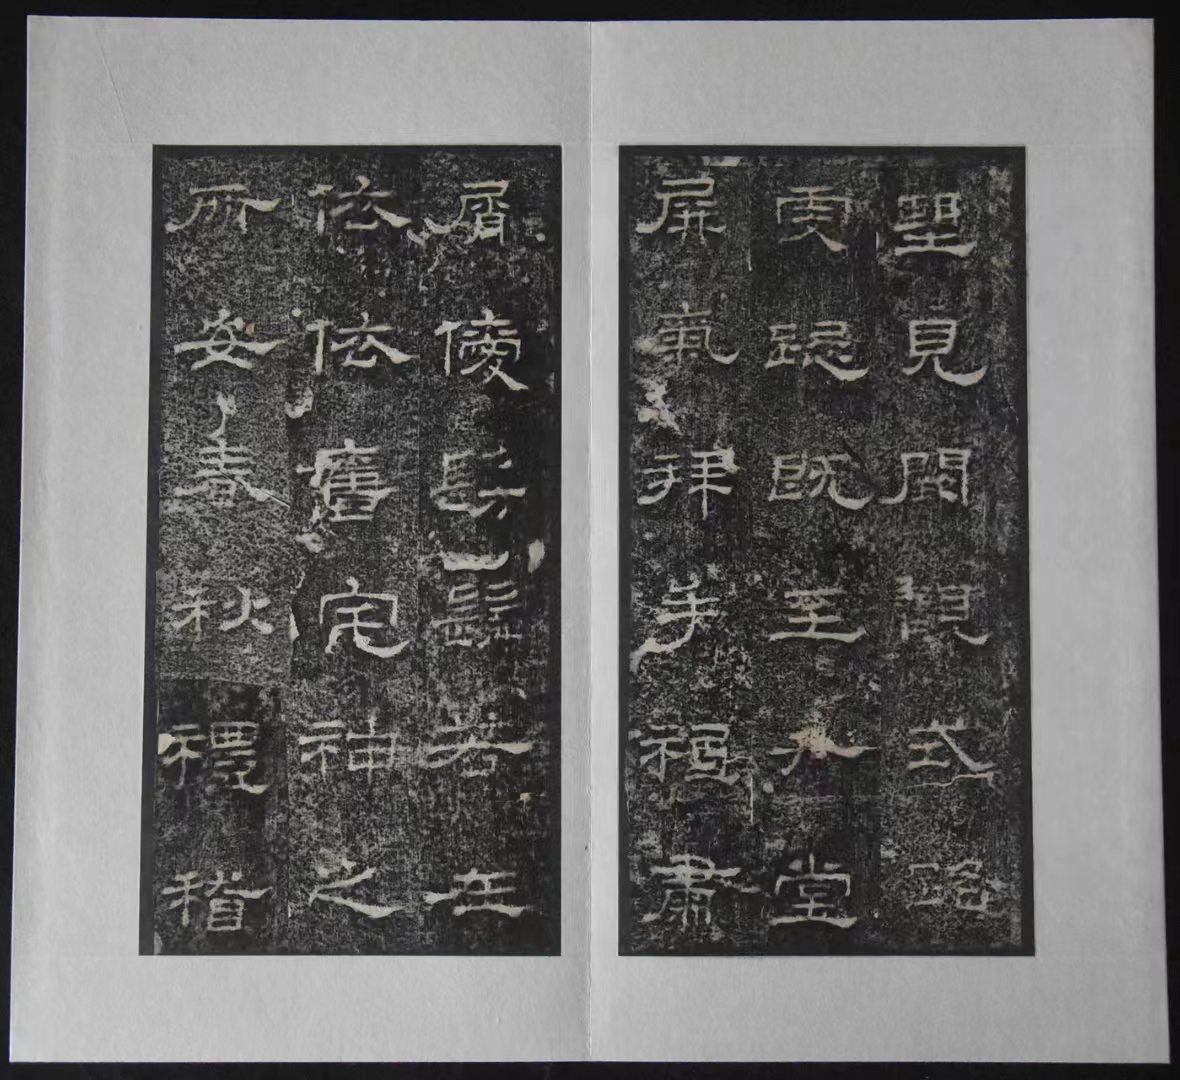 望見闕觀式路
虔跽既至升堂
屏氣拜手祗肅
屑僾髣髴若在
依依舊宅神之
所安春秋禮稽